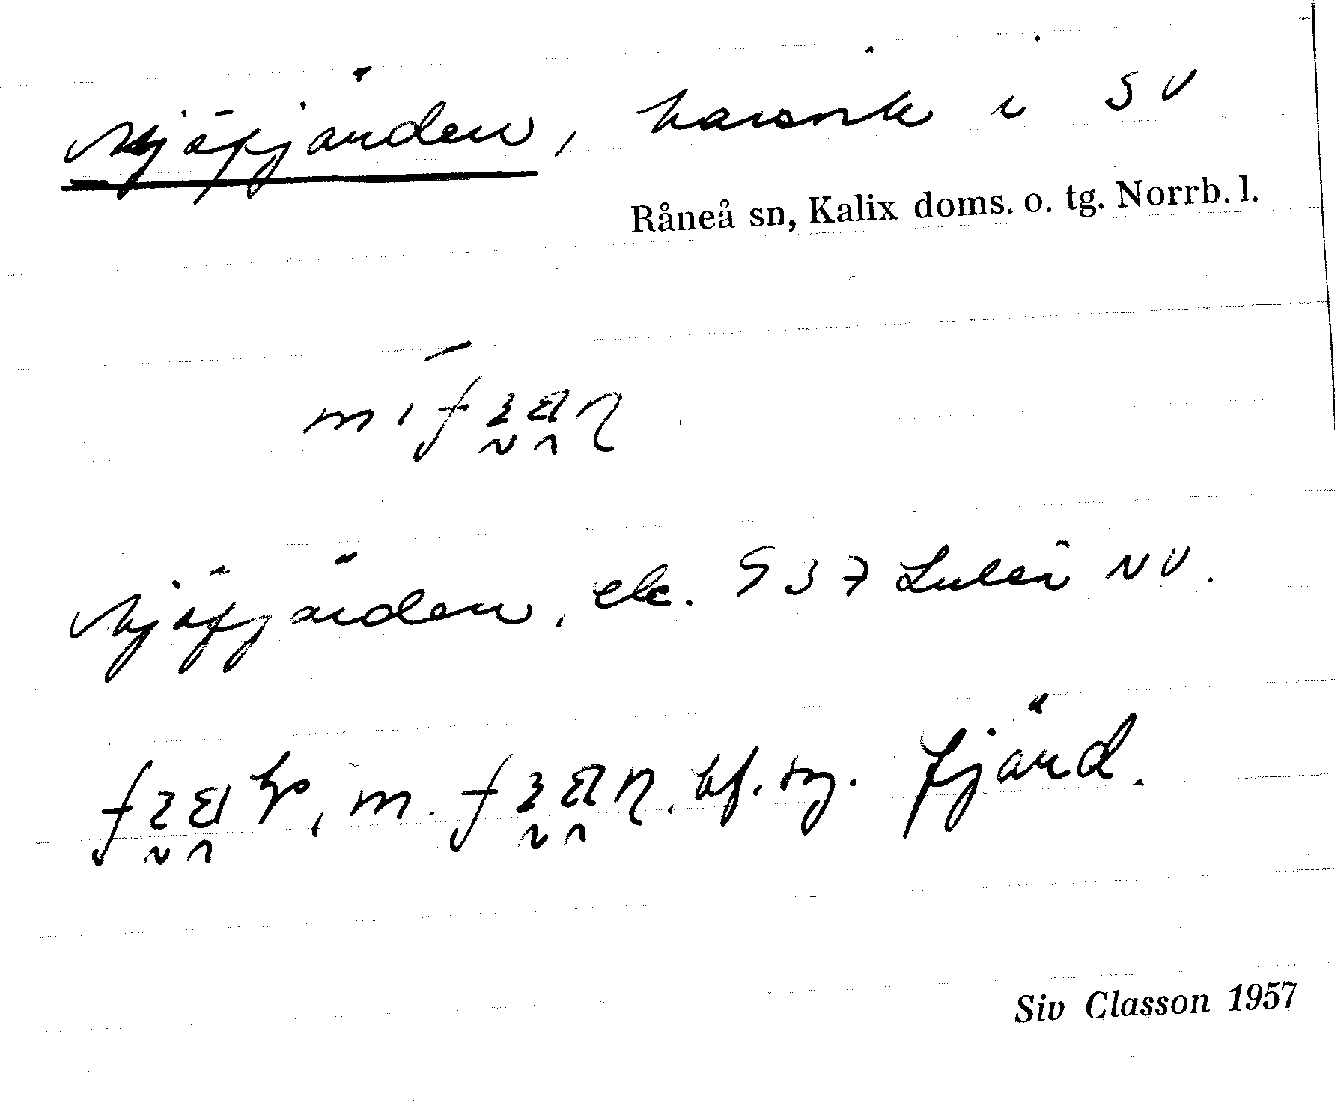 Mjöfjärden, havsvik i SV
Råneå sn, Kalix doms. o. tg. Norrb. l.
Mjöfjärden, ek. 937 Luleå NV.
m. bf. sg. fjärd.
Siv Classon 1957